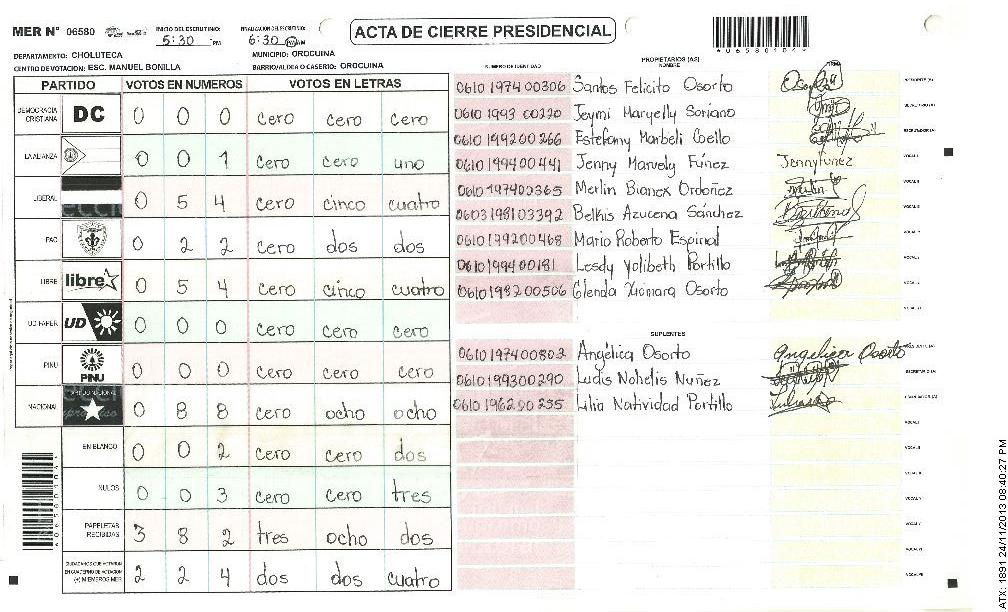 MER N° 06580
INICIO DEL ESCRUTINIO: 5:30 PM
FINALIZACION DEL ESCRUTINIO: 6:30 PM
ACTA DE CIERRE PRESIDENCIAL
*06580104*
DEPARTAMENTO: CHOLUTECA
MUNICIPIO: OROCUINA
CENTRO DE VOTACION: ESC. MANUEL BONILLA
BARRIO/ALDEA O CASERIO: OROCUINA
PARTIDO VOTOS EN NUMEROS VOTOS EN LETRAS
DEMOCRACIA CRISTIANA DC 0 0 0 cero cero cero
LA ALIANZA 0 0 1 cero cero uno
LIBERAL 0 5 4 cero cinco cuatro
PAC 0 2 2 cero dos dos
LIBRE libre 0 5 4 cero cinco cuatro
UD-FAPER UD 0 0 0 cero cero cero
PINU PINU 0 0 0 cero cero cero
NACIONAL 0 8 8 cero ocho ocho
EN BLANCO 0 0 2 cero cero dos
NULOS 0 0 3 cero cero tres
PAPELETAS RECIBIDAS 3 8 2 tres ocho dos
CIUDADANOS QUE VOTARON EN CUADERNO DE VOTACION (+) MIEMBROS MER 2 2 4 dos dos cuatro
PROPIETARIOS (AS)
NUMERO DE IDENTIDAD NOMBRE FIRMA
0610 1974 00306 Santos Felicito Osorto
0610 1993 00220 Jeymi Maryelly Soriano
0610 1992 00266 Estefany Marbeli Coello
0610 1994 00441 Jenny Marvely Fúnez Jenny Funez
0610 1974 00365 Merlin Bianex Ordoñez
0603 1981 03392 Belkis Azucena Sánchez
0610 1992 00468 Mario Roberto Espinal
0610 1994 00181 Lesdy Yolibeth Portillo
0610 1982 00506 Glenda Xiomara Osorto
SUPLENTES
0610 1974 00802 Angélica Osorto Angelica Osorto
0610 1993 00290 Ludis Nohelis Nuñez
0610 1962 00235 Lilia Natividad Portillo
ATX: 1891 24/11/2013 08:40:27 PM